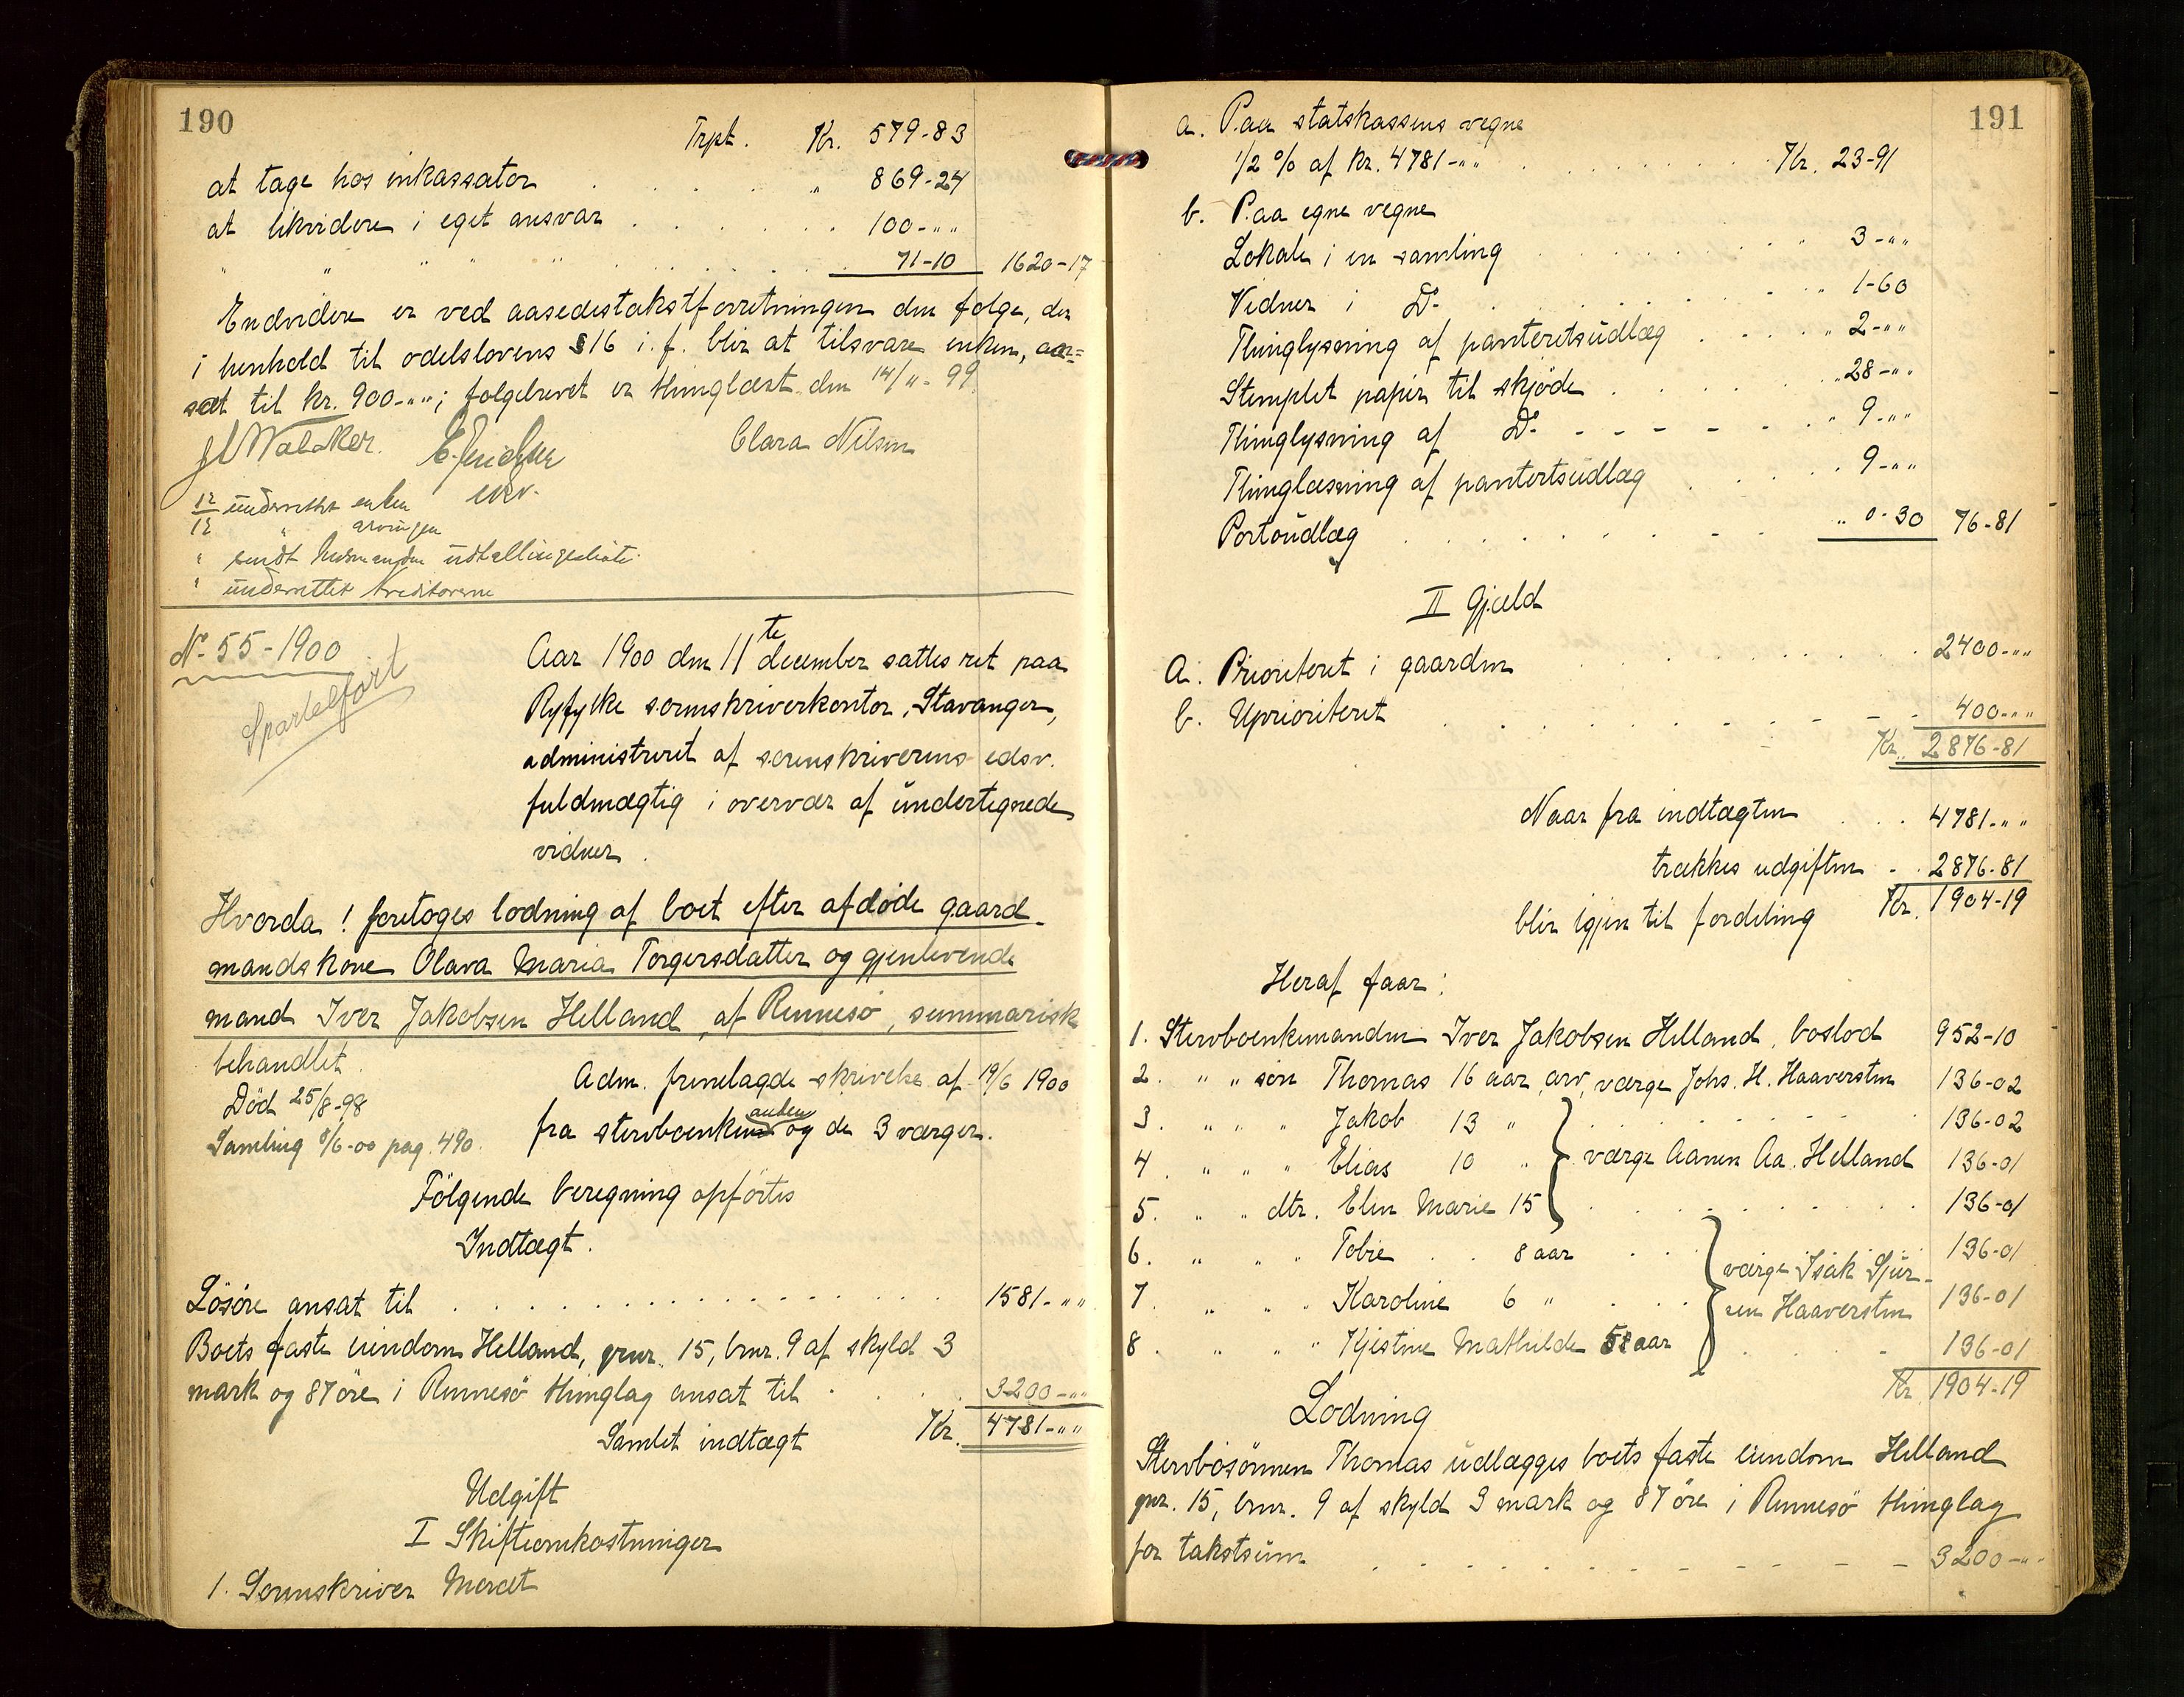 190
Trpt. Kr. 579-83
at tage hos inkassator . . . . „ 869-24
at likvidere i eget ansvar . . . . . . 100-„„
„ „ „ „ „ . . . . . . 71-10 1620-17
Endvidere er ved aasedestakstforretningen den følge, der
i henhold til odelslovens §16 i.f. blir at tilsvare enken, an=
sat til kr. 900-„„; følgebrevet er thinglæst den 14/11-99
Clara Nilsen
12/12 underrettet enken
„ „ arvingen
„ sendt
„ underrettet kreditorerne
No. 55-1900
Sportelført
Aar 1900 den 11te december sattes ret paa
Ryfylke sorenskriverkontor, Stavanger,
administreret af sorenskriverens edsv.
fuldmægtig i overvær af undertegnede
vidner.
Hvorda! foretoges lodning af boet efter afdøde gaard-
mandskone Olava Maria Torgersdatter og gjenlevende
mand Iver Jakobsen Helland, af Rennesö, summarisk
behandlet.
Død 25/8-98
Samling 8/6-00 pag. 490.
Adm. fremlagde skrivelse af 19/6 1900
fra stervboenkemanden og de 3 værger.
Følgende beregning opførtes
Indtægt.
Løsøre ansat til . . . . . . . . . . 1581-„„
Boets faste eiendom Helland, gnr. 15, bnr. 9 af skyld 3
mark og 87 øre i Rennesö thinglag ansat til . . . 3200-„„
Samlet indtægt Kr. 4781-„„
Udgift
I Skifteomkostninger
1. Sorenskriver
191
a. Paa statskassens vegne
1/2 % af kr. 4781-„„ . . . . . . Kr. 23-91
b. Paa egne vegne
Lokale i en samling . . . . . . „ 3-„„
Vidner i Do. . . . . . . „ 1-60
Thinglysning af panteretsudlæg . . . „ 2-„„
Stemplet papir til skjøde . . . . . „ 28-„„
Thinglysning af Do. - - - - - - „ 9-„„
Thinglæsning af panteretsudlæg . . . 9-„„
Portoudlæg . . . . . . . „ 0-30 76-81
II Gjæld
a. Prioriteret i gaarden . . . . . . . 2400-„„
b. Uprioriteret . . . . . . - - - - 400-„„
Kr. 2876-81
Naar fra indtægten . . . 4781-„„
trækkes udgiften . . 2876-81
blir igjen til fordeling Kr. 1904-19
Heraf faar:
1. Stervboenkemanden Iver Jakobsen Helland, boslod 952-10
2. „ „ søn Thomas 16 aar, arv, værge Johs. H. Haaversten 136-02
3. „ „ „ Jakob 13 „ . . . . . . . 136-02
4. „ „ „ Elias 10 „ værge Aanen Aa. Helland 136-01
5. „ „ dtr. Elen Marie 15 . . . . . . . 136-01
6. „ „ „ Tobie . . 8 aar . . . 136-01
7. „ „ „ Karoline 6 „ . . . værge Isak Sjur- 136-01
8. „ „ „ Kjestine Mathilde 5 aar sen Haaversten 136-01
Kr. 1904-19
Lodning
Stervbosønnen Thomas udlægges boets faste eiendom Helland
gnr. 15, bnr. 9 af skyld 3 mark og 87 øre i Rennesö thinglag
for takstsum . . . . - - - - - - 3200-„„